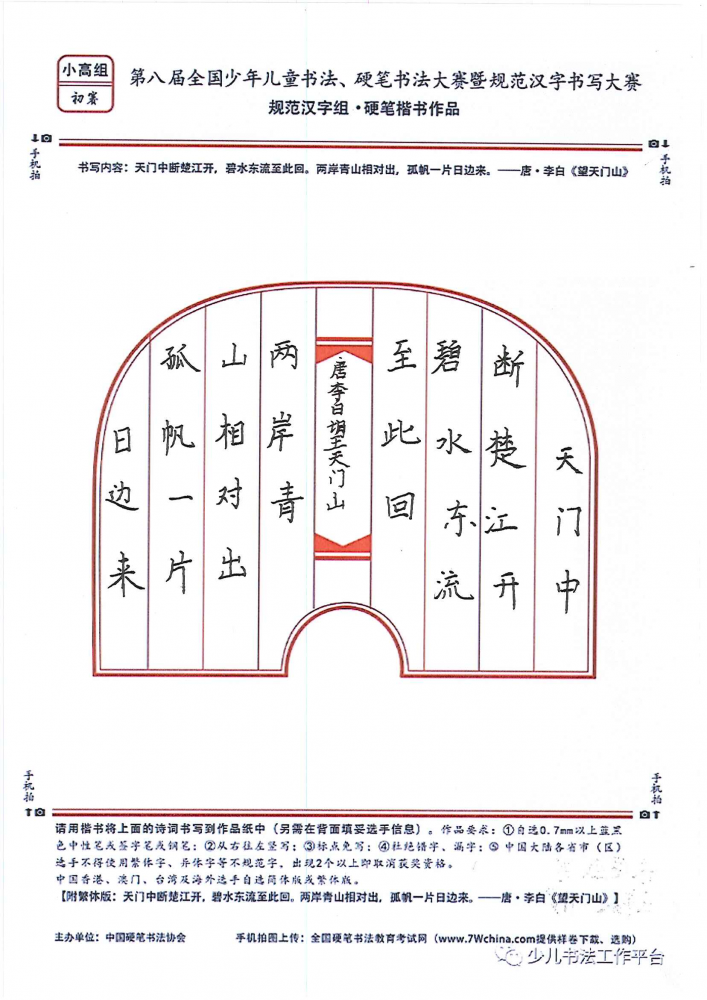 小高组
初赛
第八届全国少年儿童书法、硬笔书法大赛暨规范汉字书写大赛
规范汉字组·硬笔楷书作品
手机拍
手机拍
书写内容:天门中断楚江开,碧水东流至此回。两岸青山相对出,孤帆一片日边来。——唐·李白《望天门山》
天门中
断楚江开
碧水东流
至此回
唐李白望天门山
两岸青
山相对出
孤帆一片
日边来
手机拍
手机拍
请用楷书将上面的诗词书写到作品纸中(另需在背面填妥选手信息)。作品要求:①自选0.7mm以上蓝黑
色中性笔或签字笔或钢笔;②从右往左竖写;③标点免写;④杜绝错字、漏字;⑤中国大陆各省市(区)
选手不得使用繁体字、异体字等不规范字,出现2个以上即取消获奖资格。
中国香港、澳门、台湾及海外选手自选简体版或繁体版。
【附繁体版:天门中断楚江开,碧水东流至此回。两岸青山相对出,孤帆一片日边来。——唐·李白《望天门山》】
主办单位:中国硬笔书法协会
手机拍图上传:全国硬笔书法教育考试网(www.7Wchina.com提供样卷下载、选购)
少儿书法工作平台